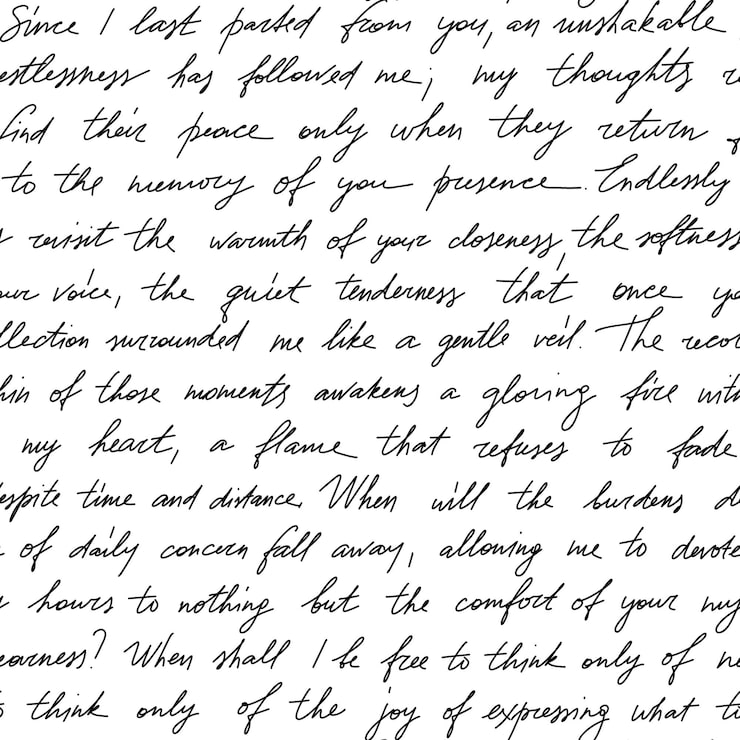 Since I last parted from you, an unshakable
estlessness has followed me; my thoughts r
find their peace only when they return
to the memory of you presence. Endlessly
revisit the warmth of your closeness, the softness
our voice, the quiet tenderness that once yo
llection surrounded me like a gentle veil. The recor
hin of those moments awakens a gloving fire wit
my heart, a flame that refuses to fade
espite time and distance. When will the burdens d
of daily concern fall away, allowing me to devote
hours to nothing but the comfort of your my
earness? When shall I be free to think only of ne
to think only of the joy of expressing what ti